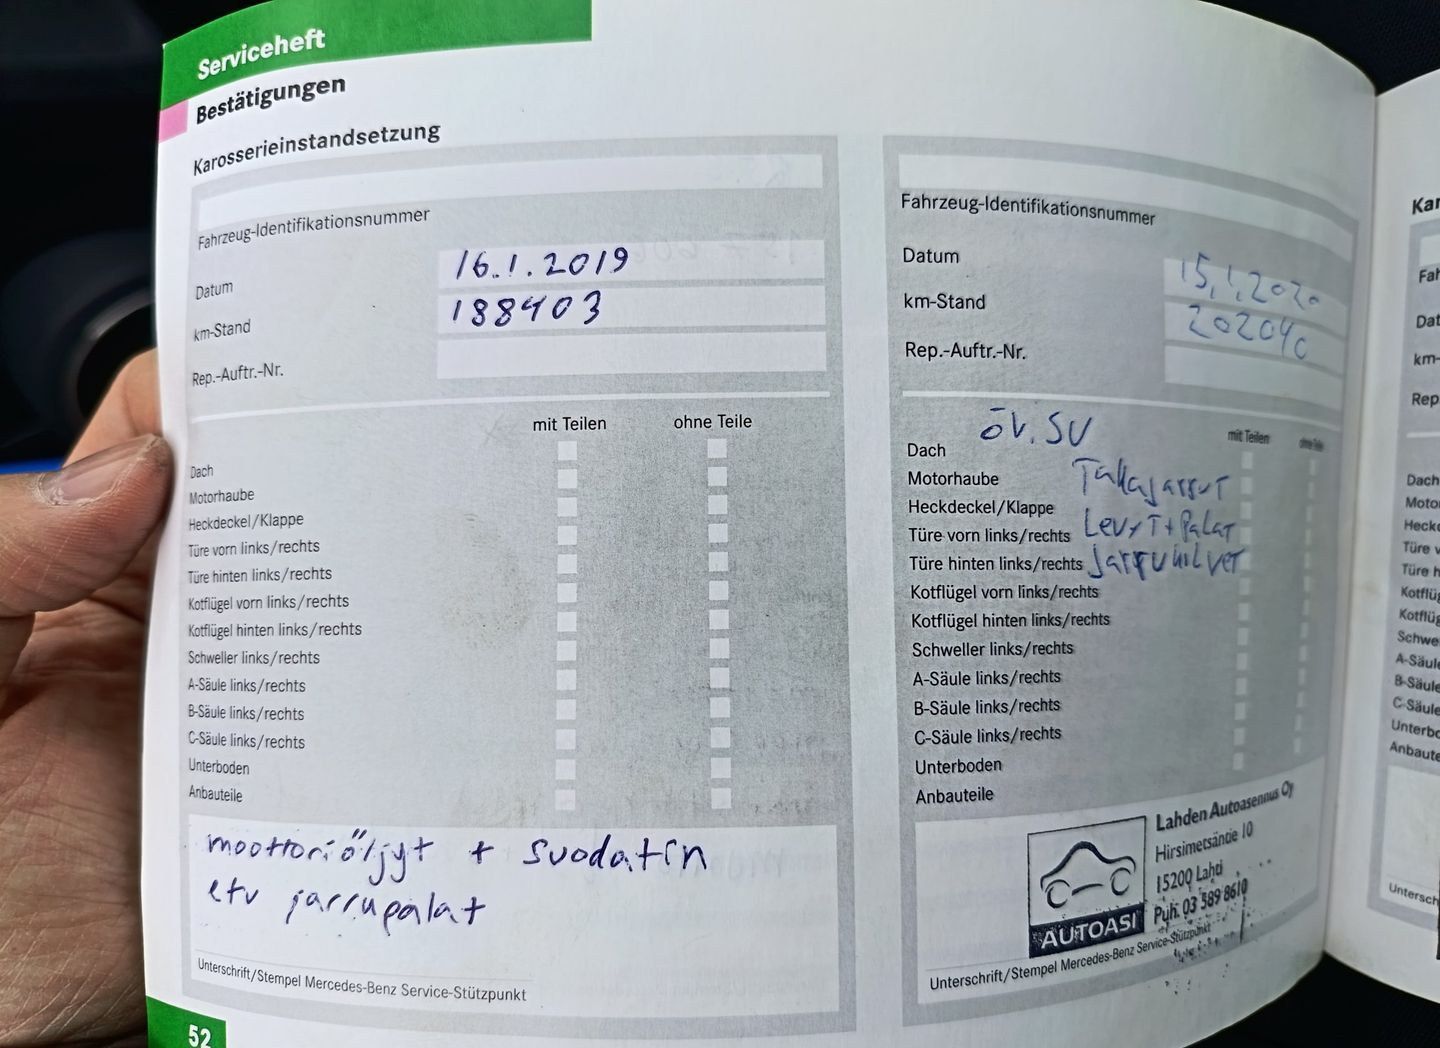 Serviceheft
Bestätigungen
Karosserieinstandsetzung
Fahrzeug-Identifikationsnummer
Datum 16.1.2019
km-Stand 188403
Rep.-Auftr.-Nr.
mit Teilen ohne Teile
Dach
Motorhaube
Heckdeckel/Klappe
Türe vorn links/rechts
Türe hinten links/rechts
Kotflügel vorn links/rechts
Kotflügel hinten links/rechts
Schweller links/rechts
A-Säule links/rechts
B-Säule links/rechts
C-Säule links/rechts
Unterboden
Anbauteile
moottoriöljyt + suodatin
etu jarrupalat
Unterschrift/Stempel Mercedes-Benz Service-Stützpunkt
52
Fahrzeug-Identifikationsnummer
Datum 15.1.2020
km-Stand 202040
Rep.-Auftr.-Nr.
öv. SV
mit Teilen ohne Teile
Dach
Motorhaube Takajarrut
Heckdeckel/Klappe
Türe vorn links/rechts Levyt+Palat
Türe hinten links/rechts Jarrukilvet
Kotflügel vorn links/rechts
Kotflügel hinten links/rechts
Schweller links/rechts
A-Säule links/rechts
B-Säule links/rechts
C-Säule links/rechts
Unterboden
Anbauteile
AUTOASI
Lahden Autoasennus Oy
Hirsimetsäntie 10
15200 Lahti
Puh. 03 589 8610
Unterschrift/Stempel Mercedes-Benz Service-Stützpunkt
Kar
Fah
Dat
km-
Rep
Dach
Moto
Heckd
Türe v
Türe h
Kotflüg
Kotflüg
Schwe
A-Säule
B-Säule
C-Säule
Unterbo
Anbaute
Untersch